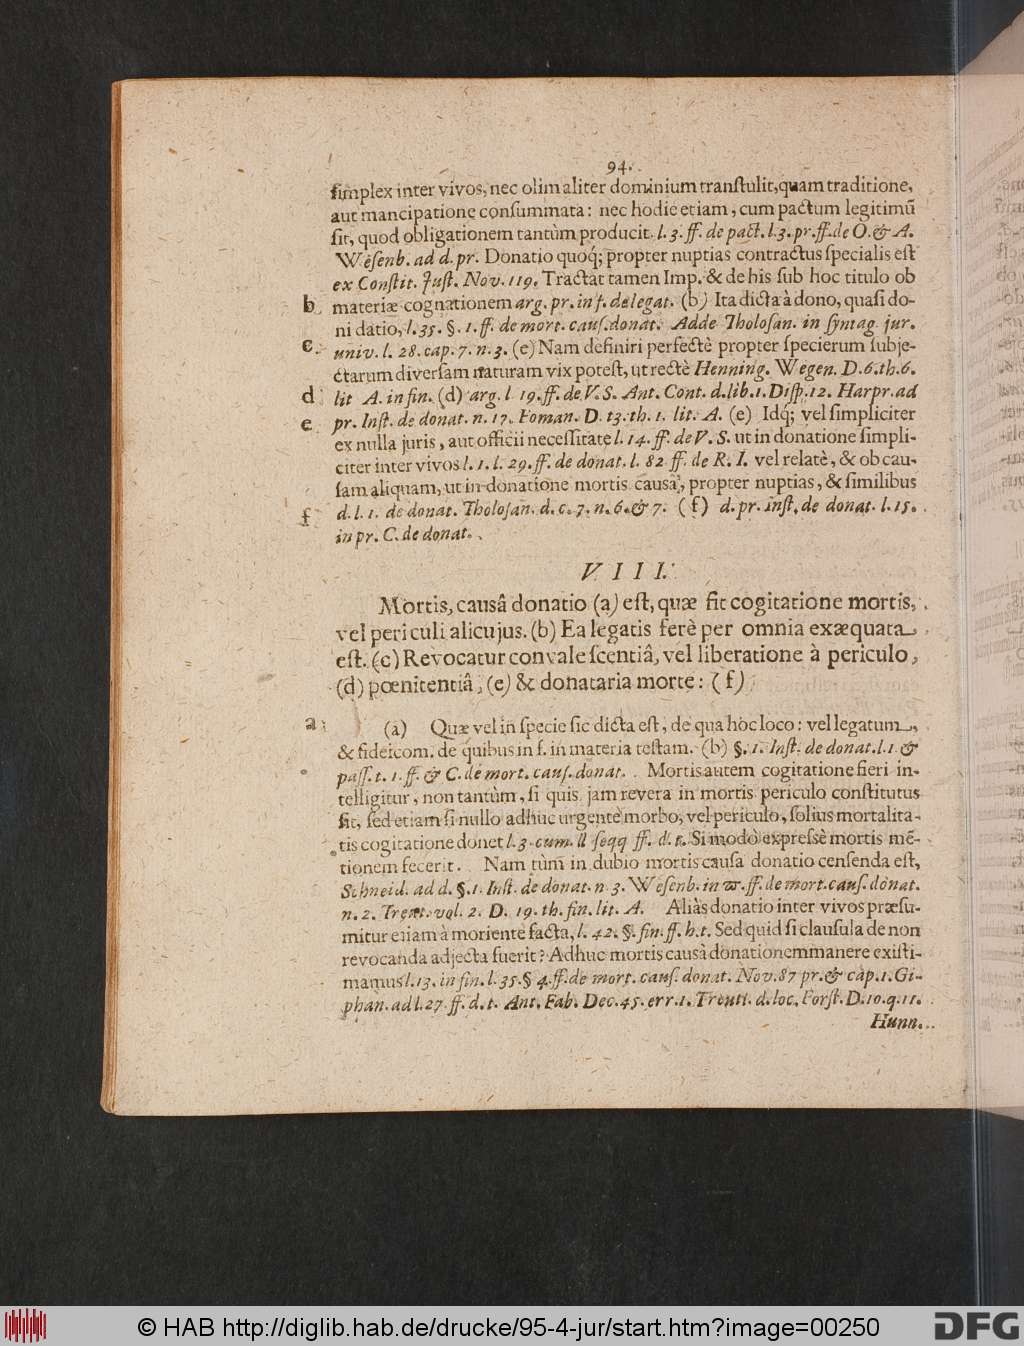 94.
ſimplex inter vivos, nec olim aliter dominium tranſtulit, quam traditione,
aut mancipatione conſummata: nec hodie etiam, cum pactum legitimū
ſit, quod obligationem tantùm producit. l. 3. ff. de pact. l. 3. pr. ff. de O. & A.
Weſenb. ad d. pr. Donatio quoq́; propter nuptias contractus ſpecialis eſt
ex Conſtit. Juſt. Nov. 119. Tractat tamen Imp. & de his ſub hoc titulo ob
b materiæ cognationem arg. pr. in f. de legat. (b) Ita dicta à dono, quaſi do-
ni datio, l. 35. §. 1. ff. de mort. cauſ. donat. Adde Tholoſan. in ſyntag jur.
c. univ. l. 28. cap. 7. n. 3. (c) Nam definiri perfectè propter ſpecierum ſubje-
ctarum diverſam naturam vix poteſt, ut rectè Henning. Wegen. D. 6. th. 6.
d lit A. in fin. (d) arg. l 19. ff. de V. S. Ant. Cont. d. lib. 1. Diſp. 12. Harpr. ad
e. pr. Inſt. de donat. n. 17. Foman. D. 13. th. 1. lit. A. (e) Idq́; vel ſimpliciter
ex nulla juris, aut officii neceſſitate l. 14. ff. de V. S. ut in donatione ſimpli-
citer inter vivos l. 1. l. 29. ff. de donat. l. 82 ff. de R. I. vel relatè, & ob cau-
ſam aliquam, ut in donatione mortis causâ, propter nuptias, & ſimilibus
f d. l. 1. de donat. Tholoſan. d. c. 7. n. 6. & 7. (f) d. pr. inſt. de donat. l. 15.
in pr. C. de donat.
VIII.
Mortis, causâ donatio (a) eſt, quæ fit cogitatione mortis,
vel periculi alicujus. (b) Ea legatis ferè per omnia exæquata
eſt. (c) Revocatur convaleſcentiâ, vel liberatione à periculo,
(d) pœnitentiâ, (e) & donataria morte: (f)
a. (a) Quæ vel in ſpecie ſic dicta eſt, de qua hoc loco: vel legatum,
& fideicom. de quibus in f. in materia teſtam. (b) §. 1. Inſt. de donat. l. 1 &
paſſ. t. 1. ff. & C. de mort. cauſ. donat. Mortis autem cogitatione fieri in-
telligitur, non tantùm, ſi quis jam revera in mortis periculo conſtitutus
ſit, ſed etiam ſi nullo adhuc urgente morbo, vel periculo, ſolius mortalita-
tis cogitatione donet l. 3. cum. ll ſeqq ff. d. t. Si modò expreſſè mortis mē-
tionem fecerit. Nam tùm in dubio mortis causa donatio cenſenda eſt,
Schneid. ad d. §. 1. Inſt. de donat. n. 3. Weſenb. in ϖ. ff. de mort. cauſ. donat.
n. 2. Treut. vol. 2. D. 19. th. fin. lit. A. Aliàs donatio inter vivos præſu-
mitur etiam à moriente facta, l. 42. §. fin. ff. h. t. Sed quid ſi clauſula de non
revocanda adjecta fuerit? Adhuc mortis causà donationem manere exiſti-
mamus l. 13. in fin. l. 35. § 4. ff. de mort. cauſ. donat. Nov. 87 pr. & cap. 1. Gi-
phan. ad l. 27. ff. d. t. Ant. Fab. Dec. 45. err. 1. Treutl. d. loc. Forſt. D. 10. q. 11.
Hunn.
© HAB http://diglib.hab.de/drucke/95-4-jur/start.htm?image=00250
DFG